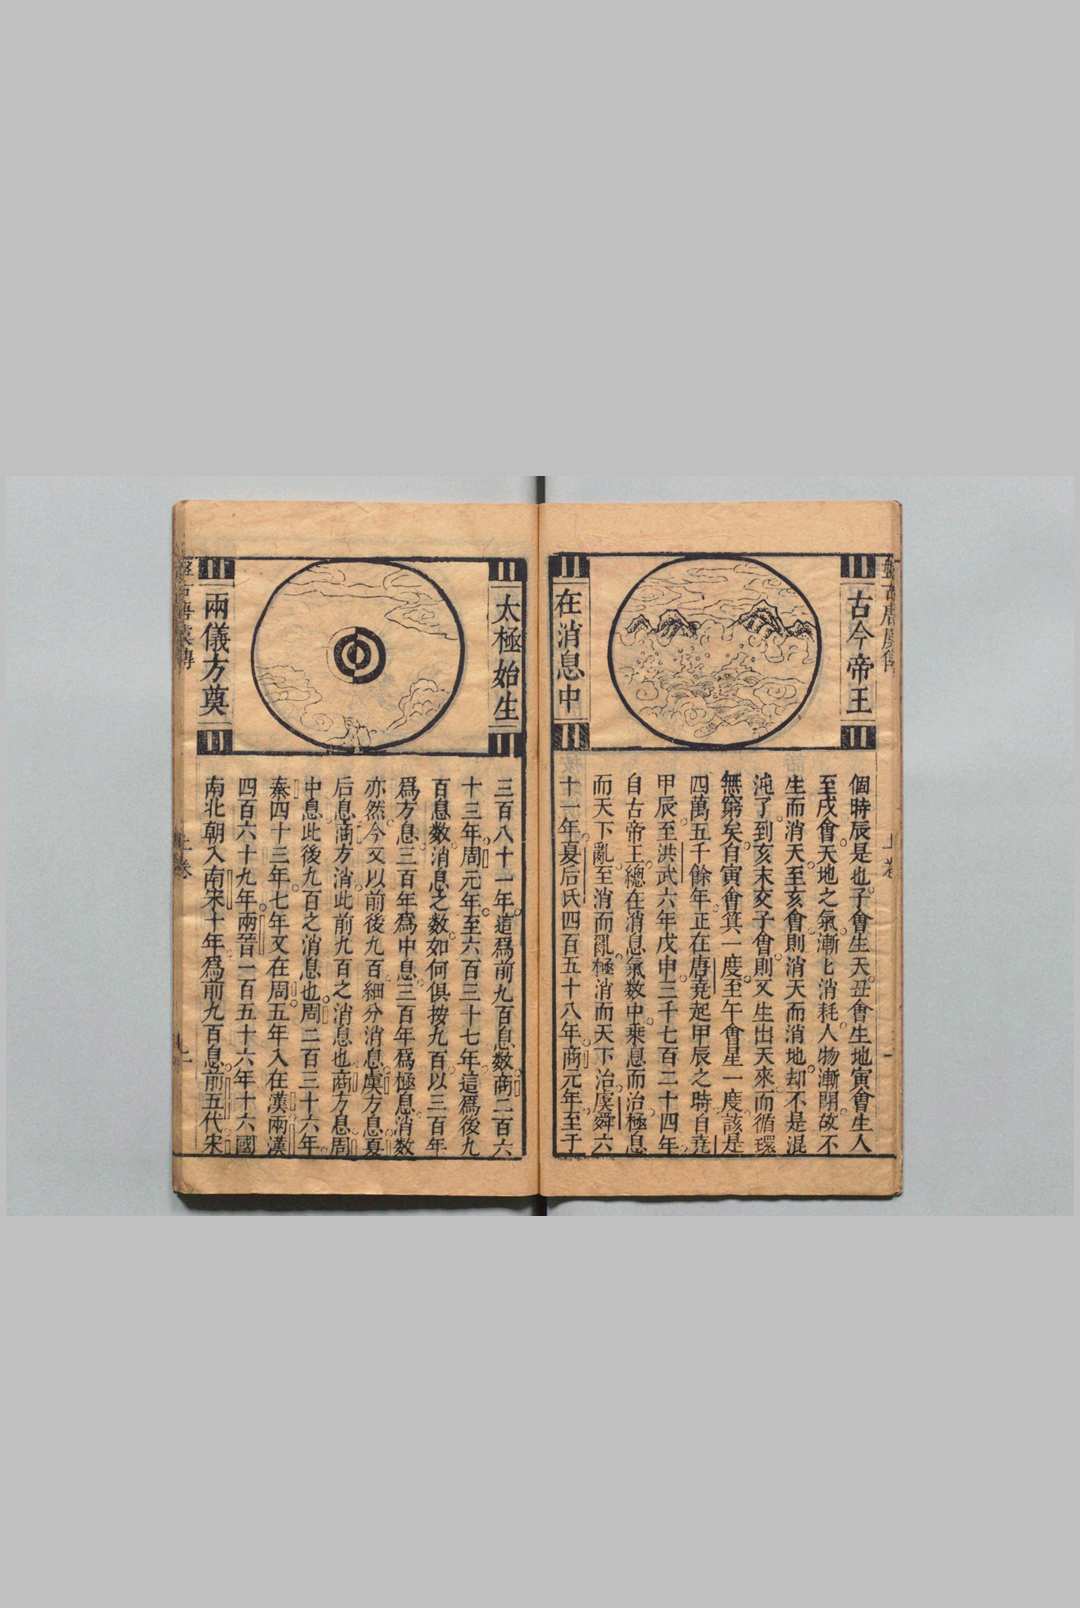 古今帝王
在消息中
個時辰是也子會生天丑會生地寅會生人
至戌會天地之氣漸匕消耗人物漸閉故不
生而消天至亥會則消天而消地却不是混
沌了到亥末交子會則又生出天來而循環
無窮矣自寅會箕一度至午會星一度該是
四萬五千餘年正在唐堯起甲辰之時自堯
甲辰至洪武六年戊申三千七百二十四年
自古帝王總在消息氣数中乘息而治極息
而天下亂至消而亂極消而天下治虞舜六
十一年夏后氏四百五十八年商元年至于
太極始生
兩儀方奠
三百八十一年這爲前九百息数商二百六
十三年周元年至六百三十七年這爲後九
百息数消息之数如何俱按九百以三百年
爲方息三百年爲中息三百年爲極息消数
亦然今又以前後九百細分消息虞方息夏
后息商方消此前九百之消息也商方息周
中息此後九百之消息也周二百三十六年
秦四十三年七年又在周五年入在漢兩漢
四百六十九年兩晉一百五十六年十六國
南北朝入南宋十年爲前九百息前五代宋
上卷